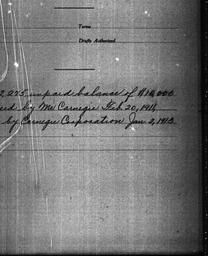 Terms
Drafts Authorized
2,275 unpaid balance of $10,000
ed by Mr. Carnegie Feb. 20, 1911
by Carnegie Corporation Jan 2, 1913.